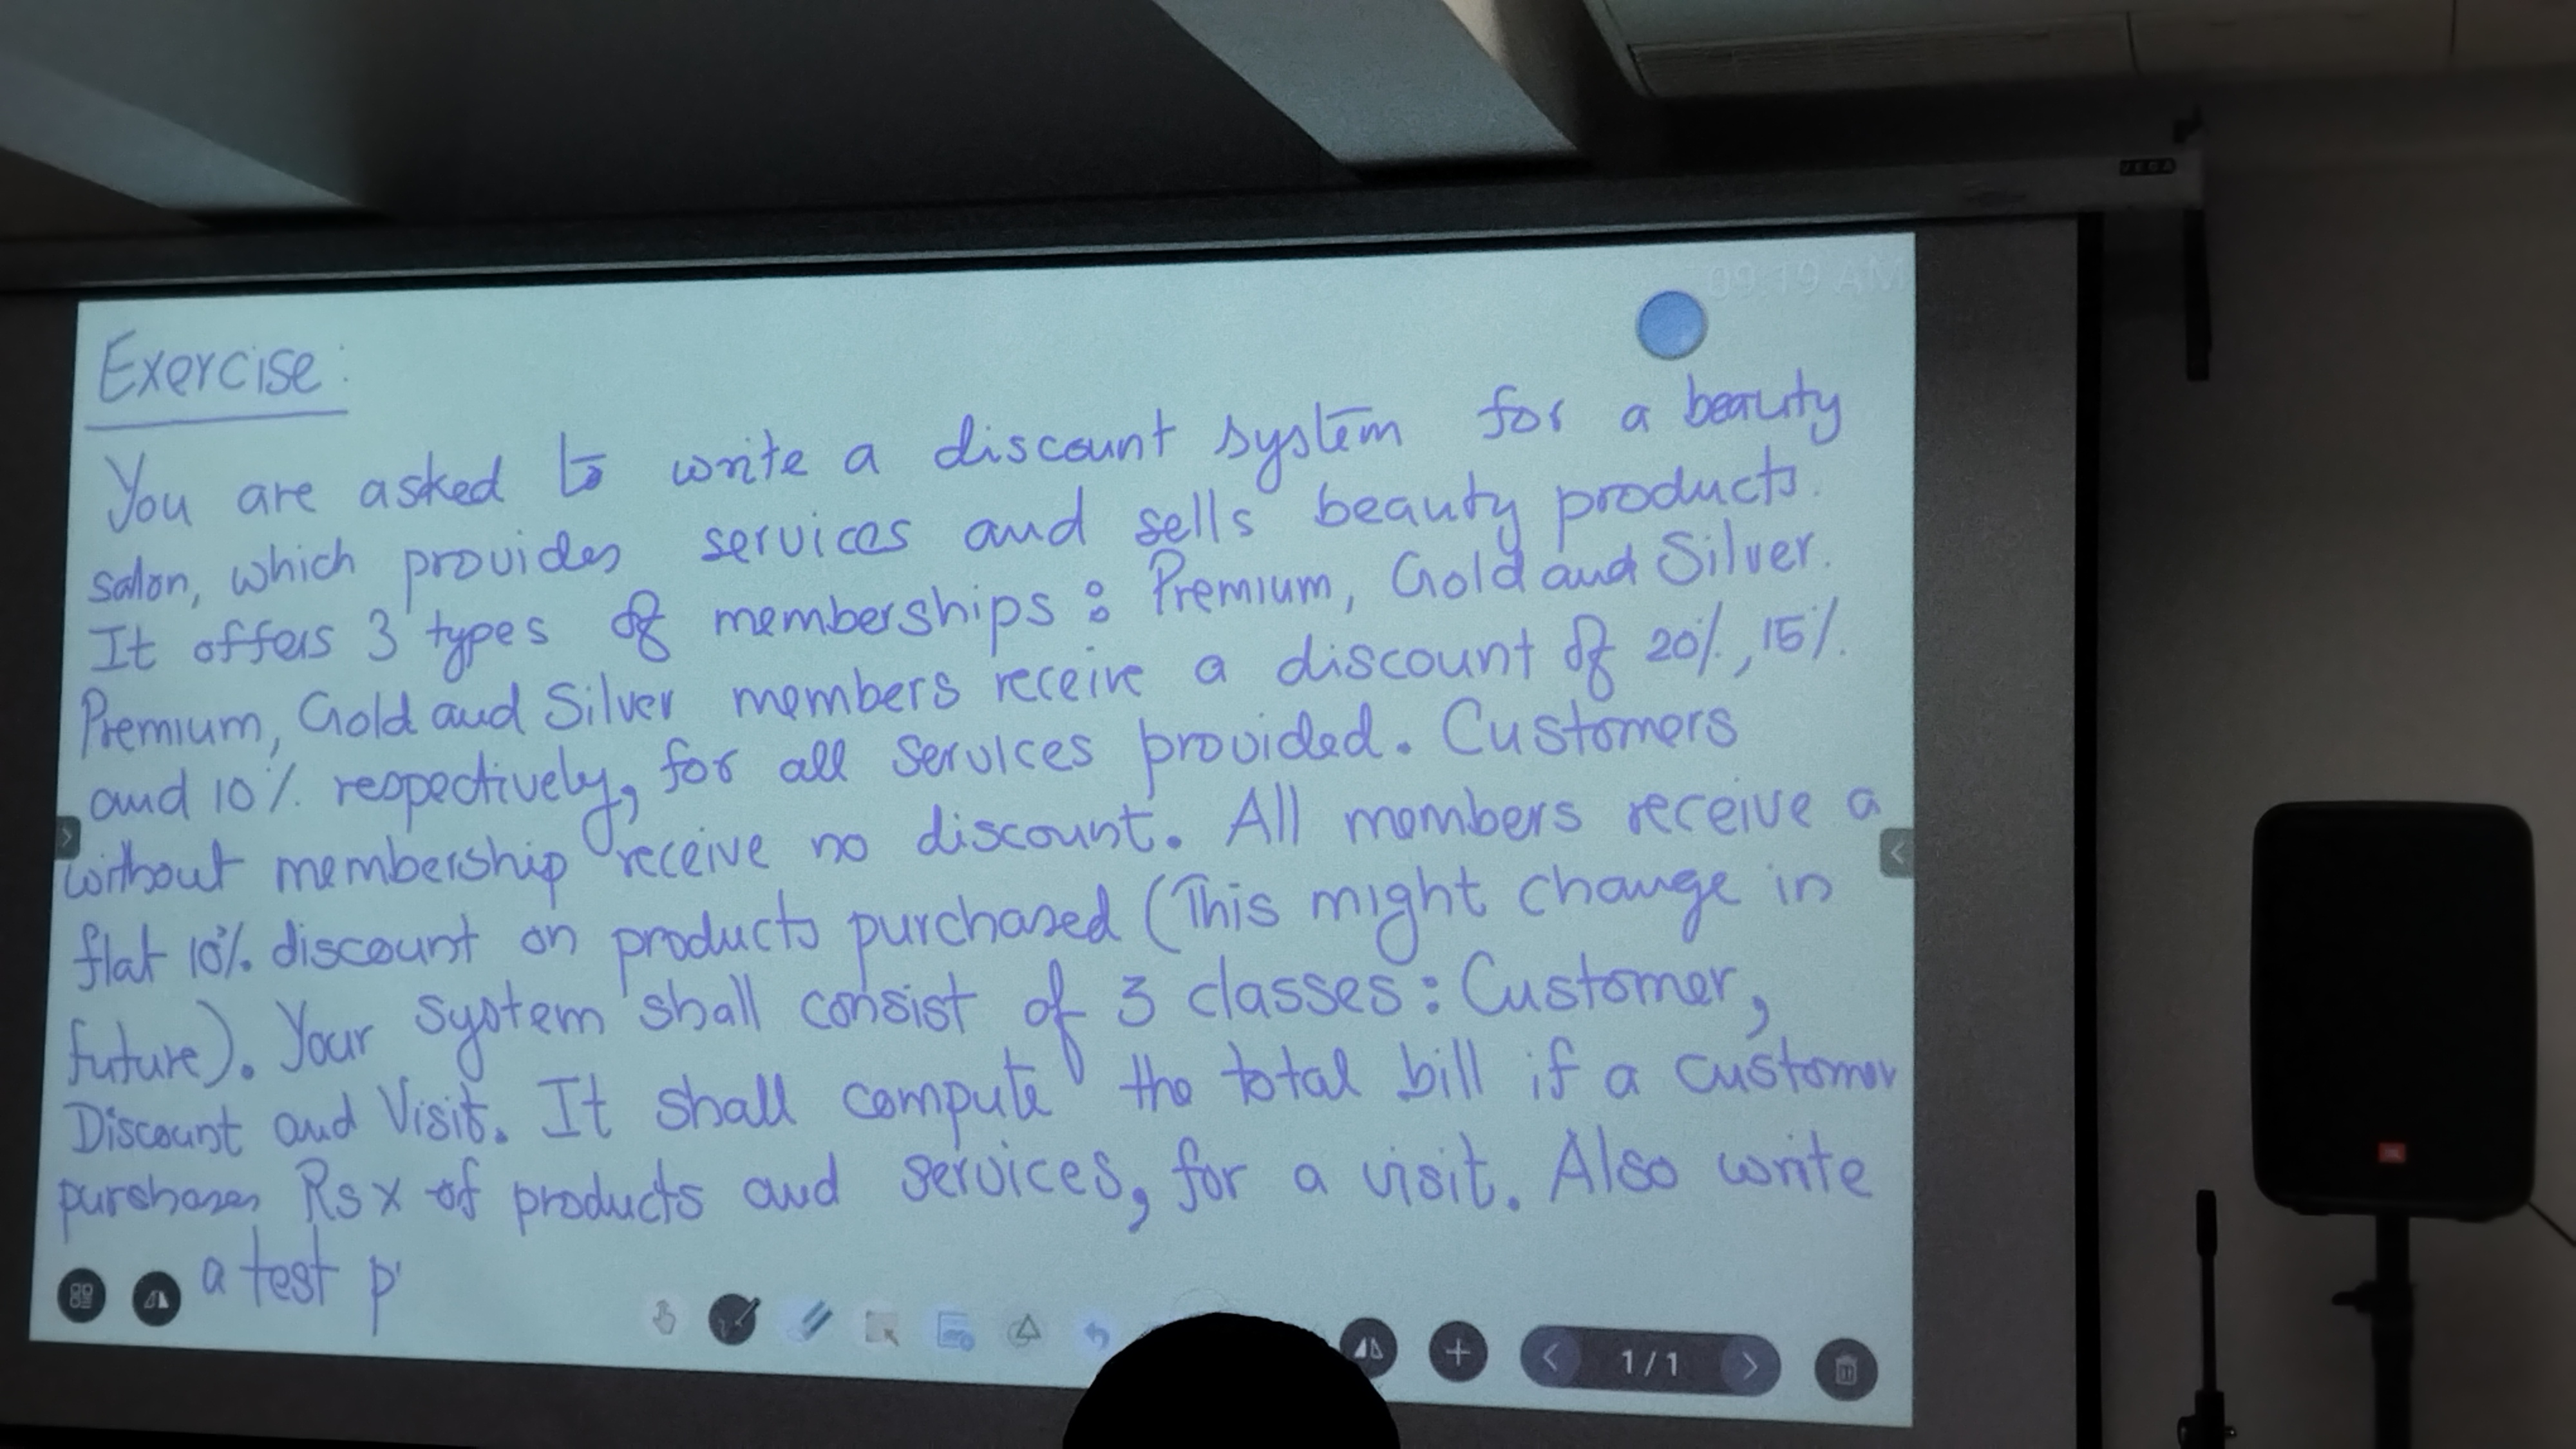 09:19 AM
VEGA
Exercise:
You are asked to write a discount system for a beauty
salon, which provides services and sells beauty products.
It offers 3 types of memberships: Premium, Gold and Silver.
Premium, Gold and Silver members receive a discount of 20%, 15%
and 10% respectively, for all services provided. Customers
without membership receive no discount. All members receive a
flat 10% discount on products purchased (This might change in
future). Your system shall consist of 3 classes: Customer,
Discount and Visit. It shall compute the total bill if a customer
purchases Rs x of products and services, for a visit. Also write
a test p
1/1